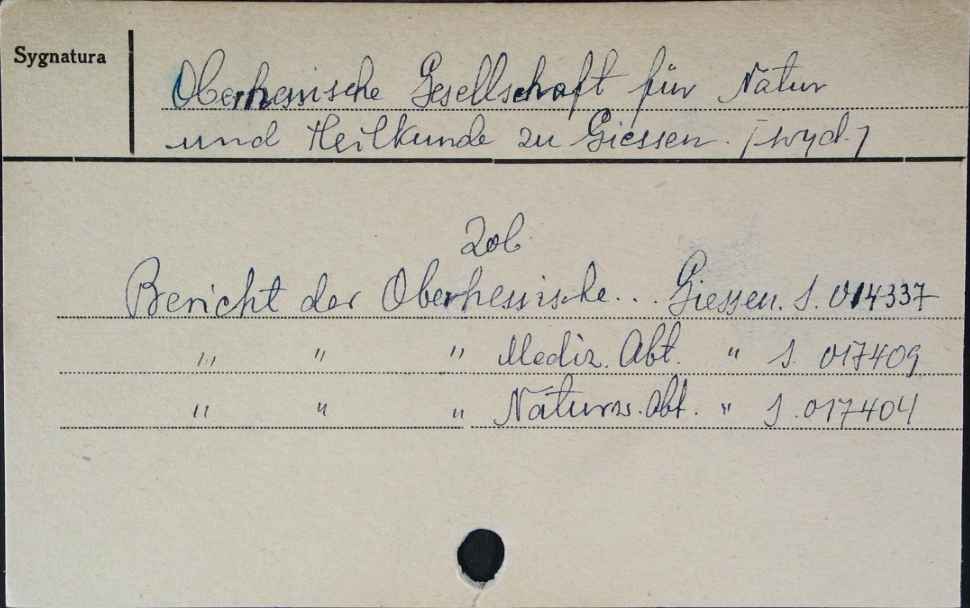 Sygnatura
Oberhessische Gesellschaft für Natur
und Heilkunde zu Giessen. [wyd.]
Zob.
Bericht der Oberhessische... Giessen. S. 014337
" " " Mediz. Abt. " S. 017409
" " " Naturw. Abt. " S. 017404